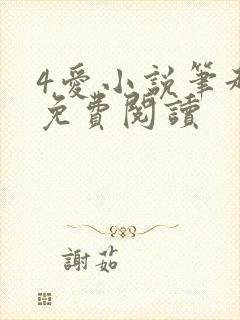 4愛小說筆
免費閱讀
謝茹